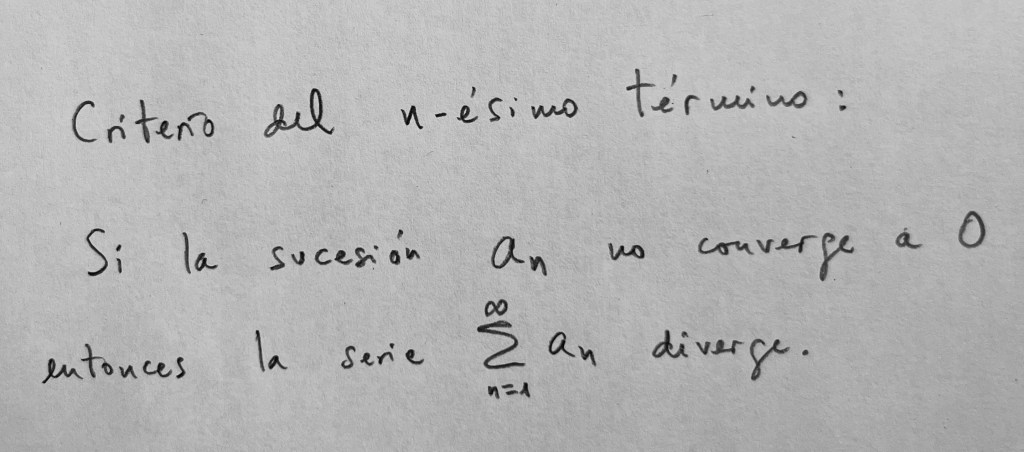 Criterio del n-ésimo término:
Si la sucesión aₙ no converge a 0
entonces la serie ∑_{n=1}^{∞} aₙ diverge.